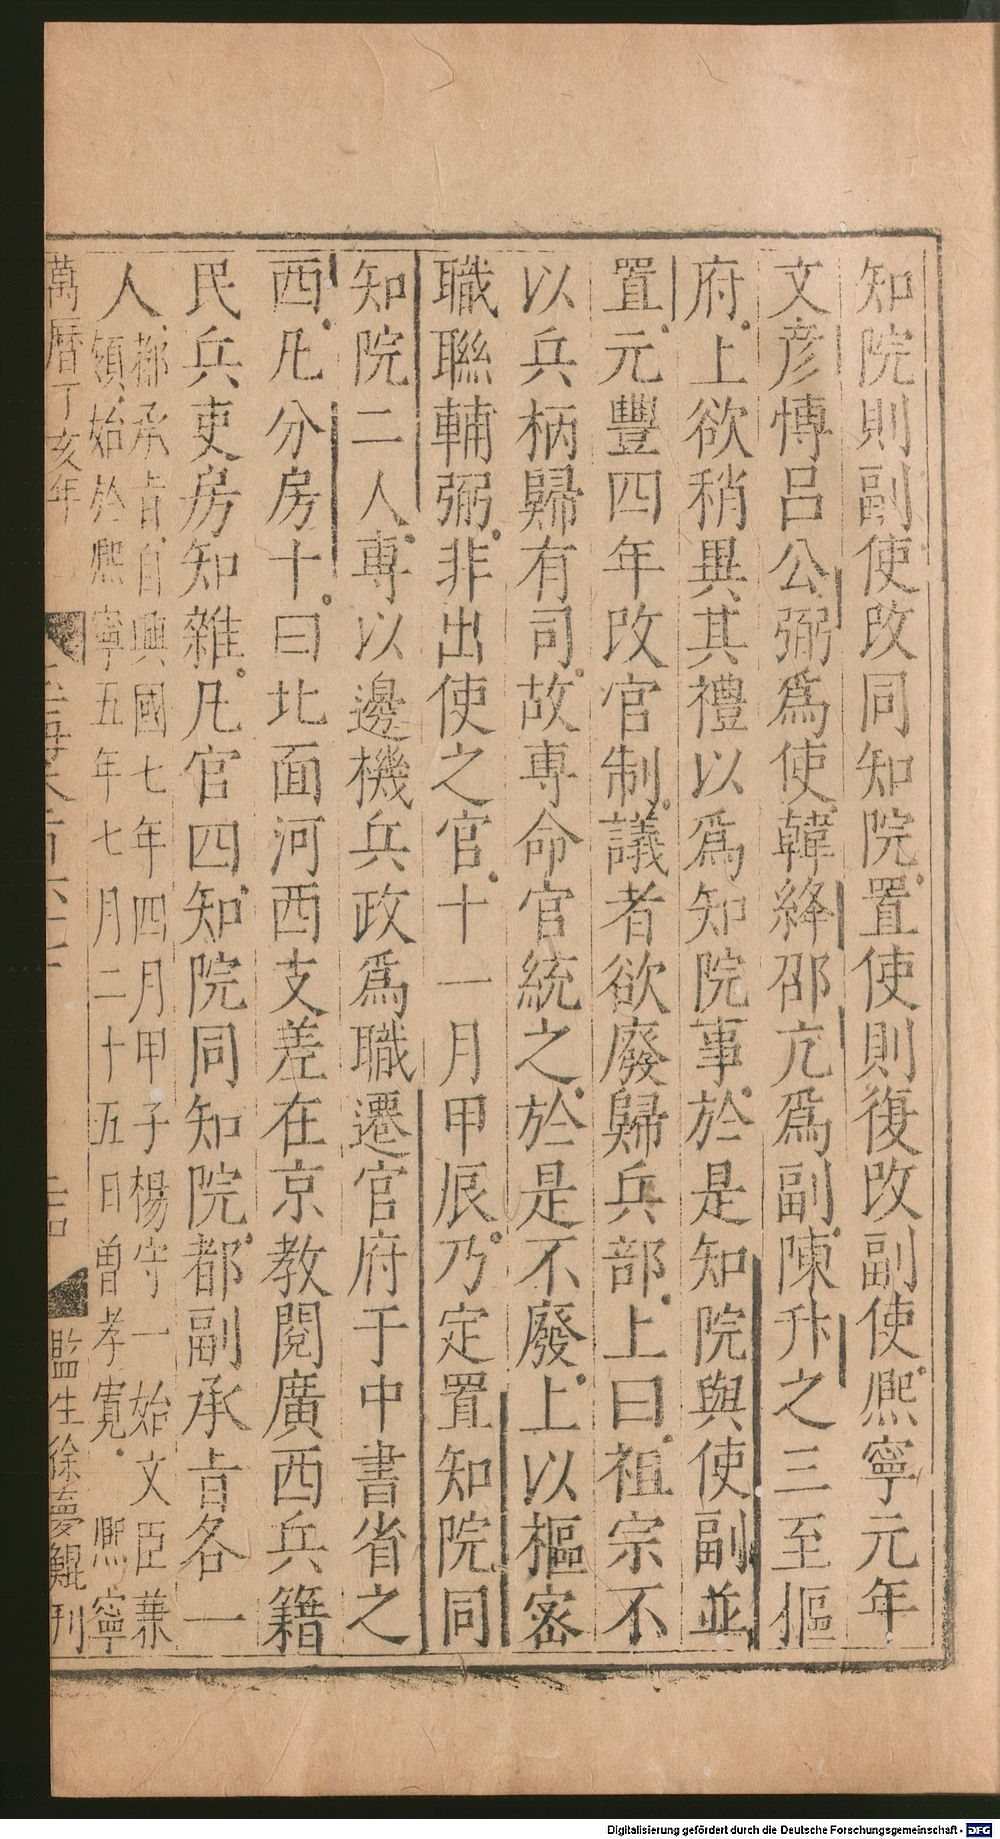 知院則副使改同知院置使則復改副使熈寧元年
文彥愽呂公弼爲使韓絳邵亢爲副陳升之三至樞
府上欲稍異其禮以爲知院事於是知院與使副並
置元豐四年改官制議者欲廢歸兵部上曰祖宗不
以兵柄歸有司故専命官統之於是不廢上以樞密
職聯輔弼非出使之官十一月甲辰乃定置知院同
知院二人専以邊機兵政爲職遷官府于中書省之
西凡分房十曰北面河西西支差在京教閱廣西兵籍
民兵吏房知雜凡官四知院同知院都副承㫖各一
人
都承㫖自興國七年四月甲子楊守一始文臣兼
領始於熈寧五年七月二十五日曾孝寬熈寧
萬曆丁亥年
監生徐夢鯤刋
Digitalisierung gefördert durch die Deutsche Forschungsgemeinschaft - DFG